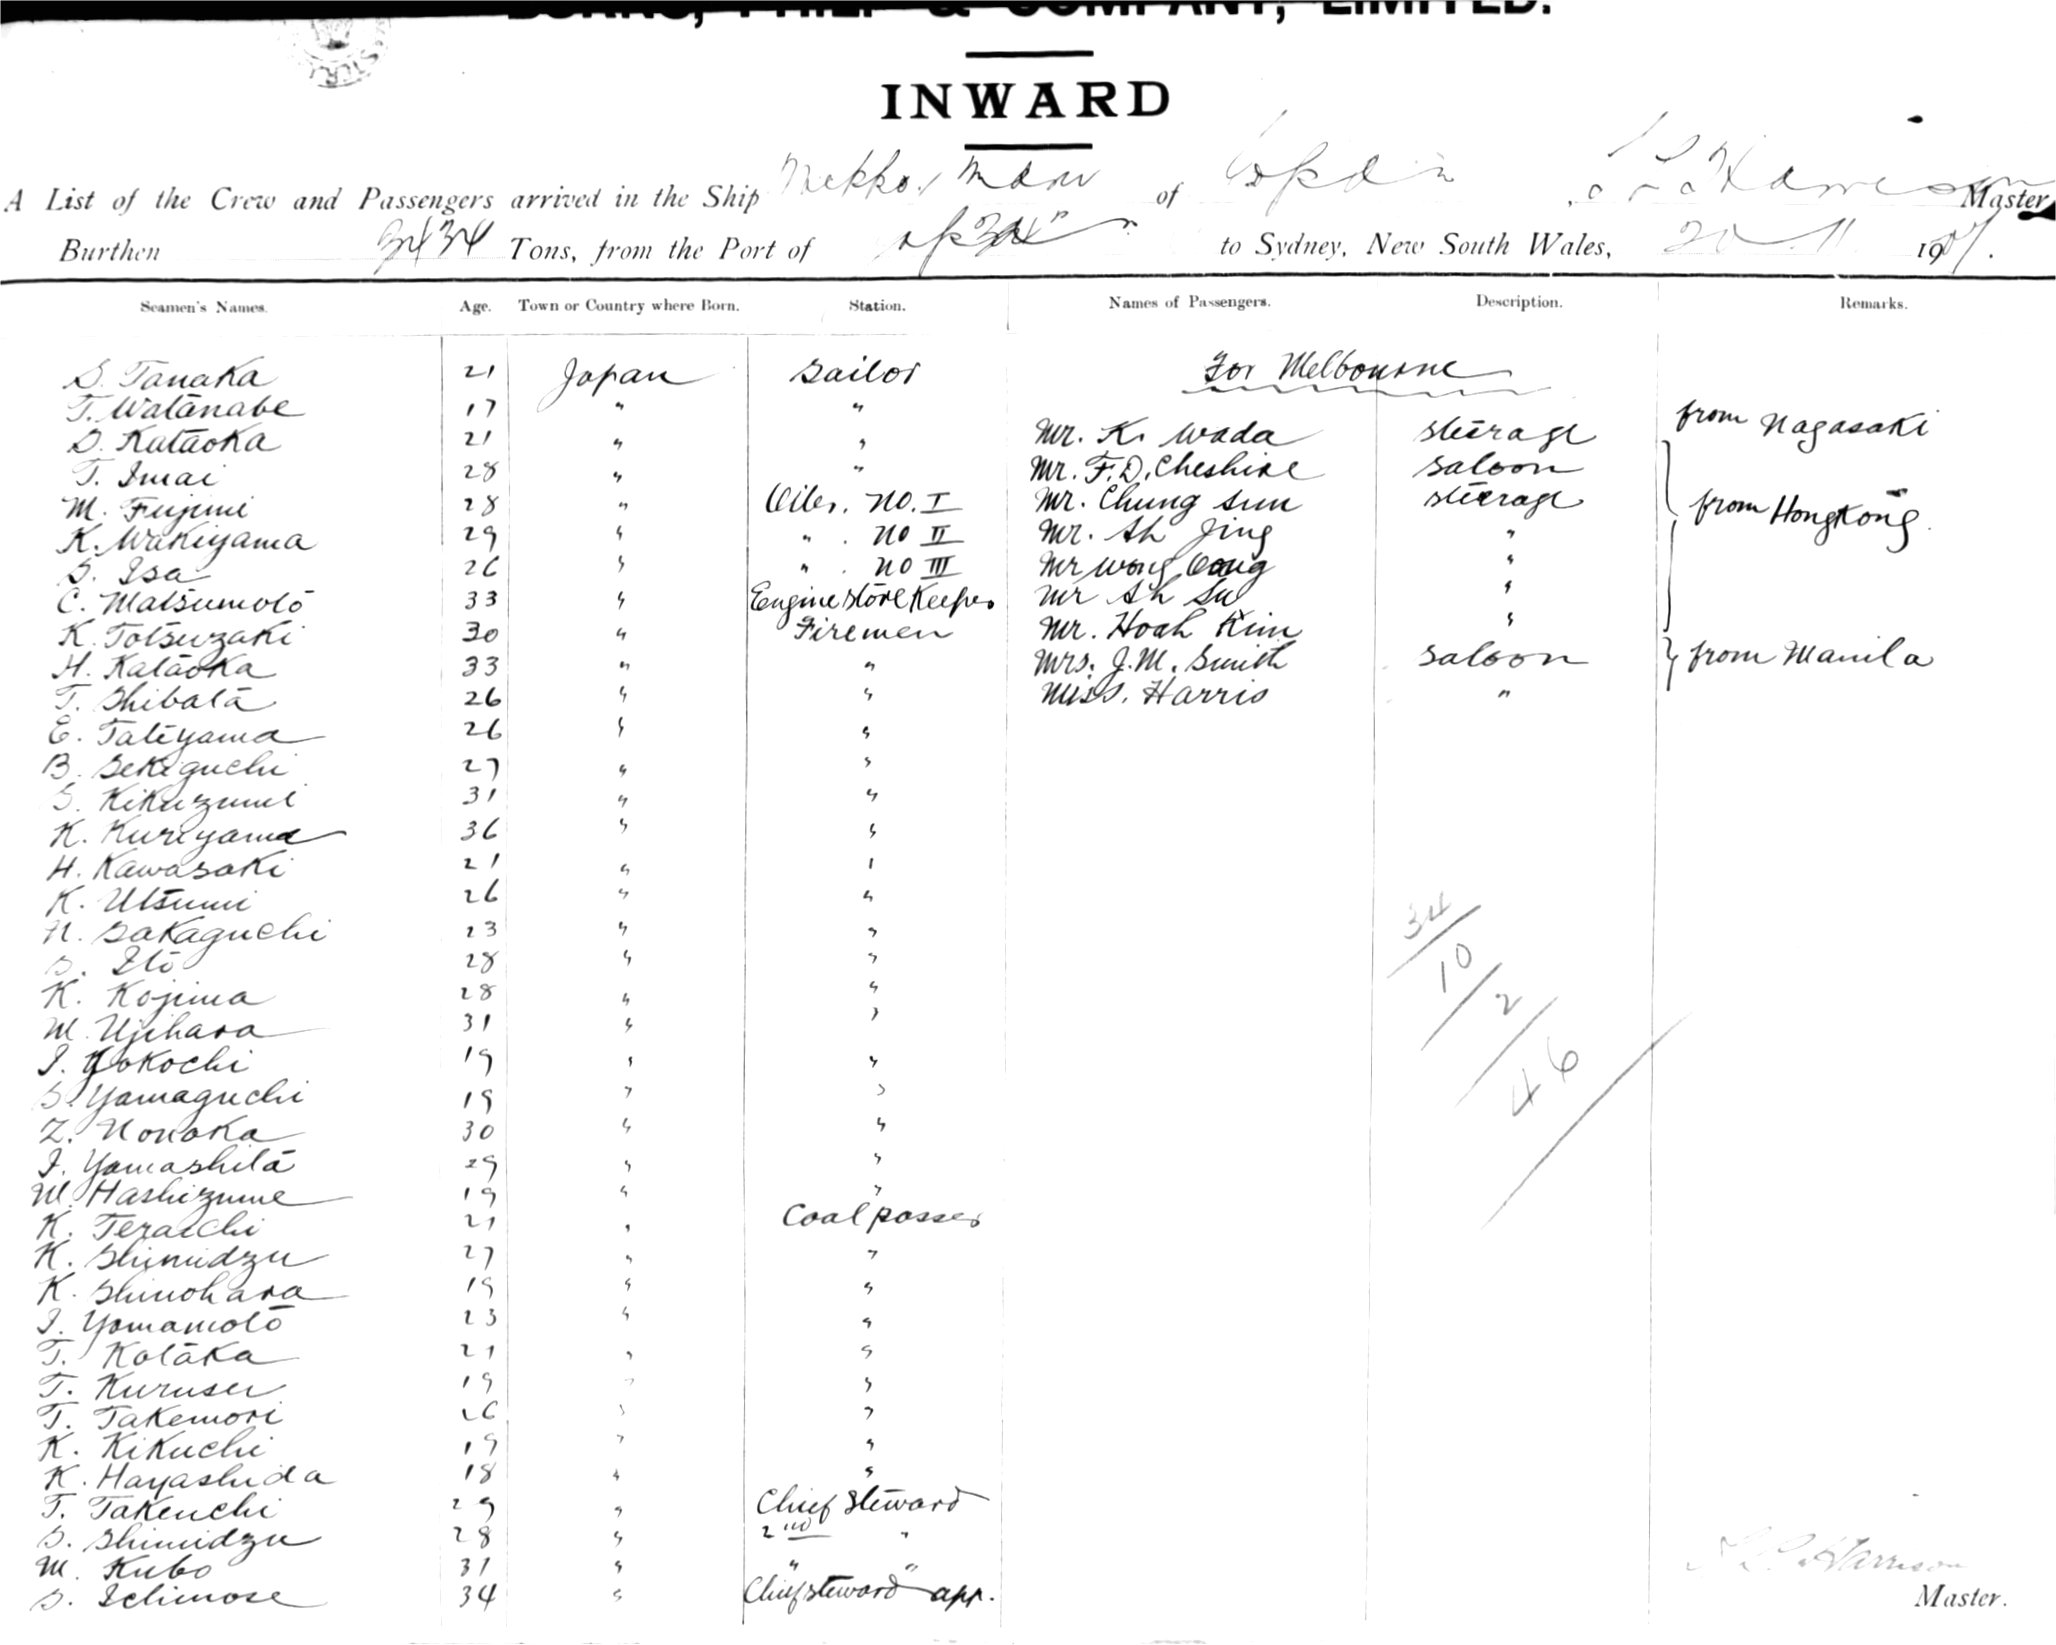 BURNS, PHILP & COMPANY, LIMITED.
INWARD
A List of the Crew and Passengers arrived in the Ship Nikko Maru of , Harrison Master
Burthen 3434 Tons, from the Port of Japan to Sydney, New South Wales, 20 11 1907.
Seamen's Names. Age. Town or Country where Born. Station. Names of Passengers. Description. Remarks.
S. Tanaka 21 Japan Sailor For Melbourne
T. Watanabe 17 " "
S. Kataoka 21 " " Mr. K. Wada steerage from Nagasaki
T. Imai 28 " " Mr. F. D. Cheshire saloon
M. Fujimi 28 " Oiler. No. I Mr. Chung Sun steerage from Hongkong.
K. Wakiyama 29 " " . No II Mr. Ah Jing "
S. Isa 26 " " . No III Mr Wong "
C. Matsumoto 33 " Engine Store Keeper Mr Ah Su "
K. Totsuzaki 30 " Firemen Mr. Hoah Kim "
H. Kataoka 33 " " Mrs. J. M. Smith saloon from Manila
T. Shibata 26 " " Miss. Harris "
E. Tateyama 26 " "
B. Sekiguchi 27 " "
S. Kikuzumi 31 " "
K. Kuriyama 36 " "
H. Kawasaki 21 " "
K. Utsumi 26 " "
N. Sakaguchi 23 " "
S. Ito 28 " "
K. Kojima 28 " "
M. Ujihara 31 " "
I. Yokochi 19 " "
S. Yamaguchi 19 " "
Z. Nonaka 30 " "
I. Yamashita 29 " "
M. Hashizume 19 " "
K. Teraichi 21 " Coal passer
K. Shimidzu 27 " "
K. Shinohara 19 " "
I. Yamamoto 23 " "
T. Kotaka 21 " "
T. Kurusu 19 " "
T. Takemori 26 " "
K. Kikuchi 19 " "
K. Hayashida 18 " "
T. Takenchi 29 " Chief Steward
S. Shimidzu 28 " 2nd "
M. Kubo 31 " " "
S. Ichinose 34 " Chief steward app.
34
10
2
46
Harrison
Master.